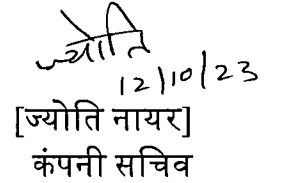 ज्योति
12/10/23
[ज्योति नायर]
कंपनी सचिव